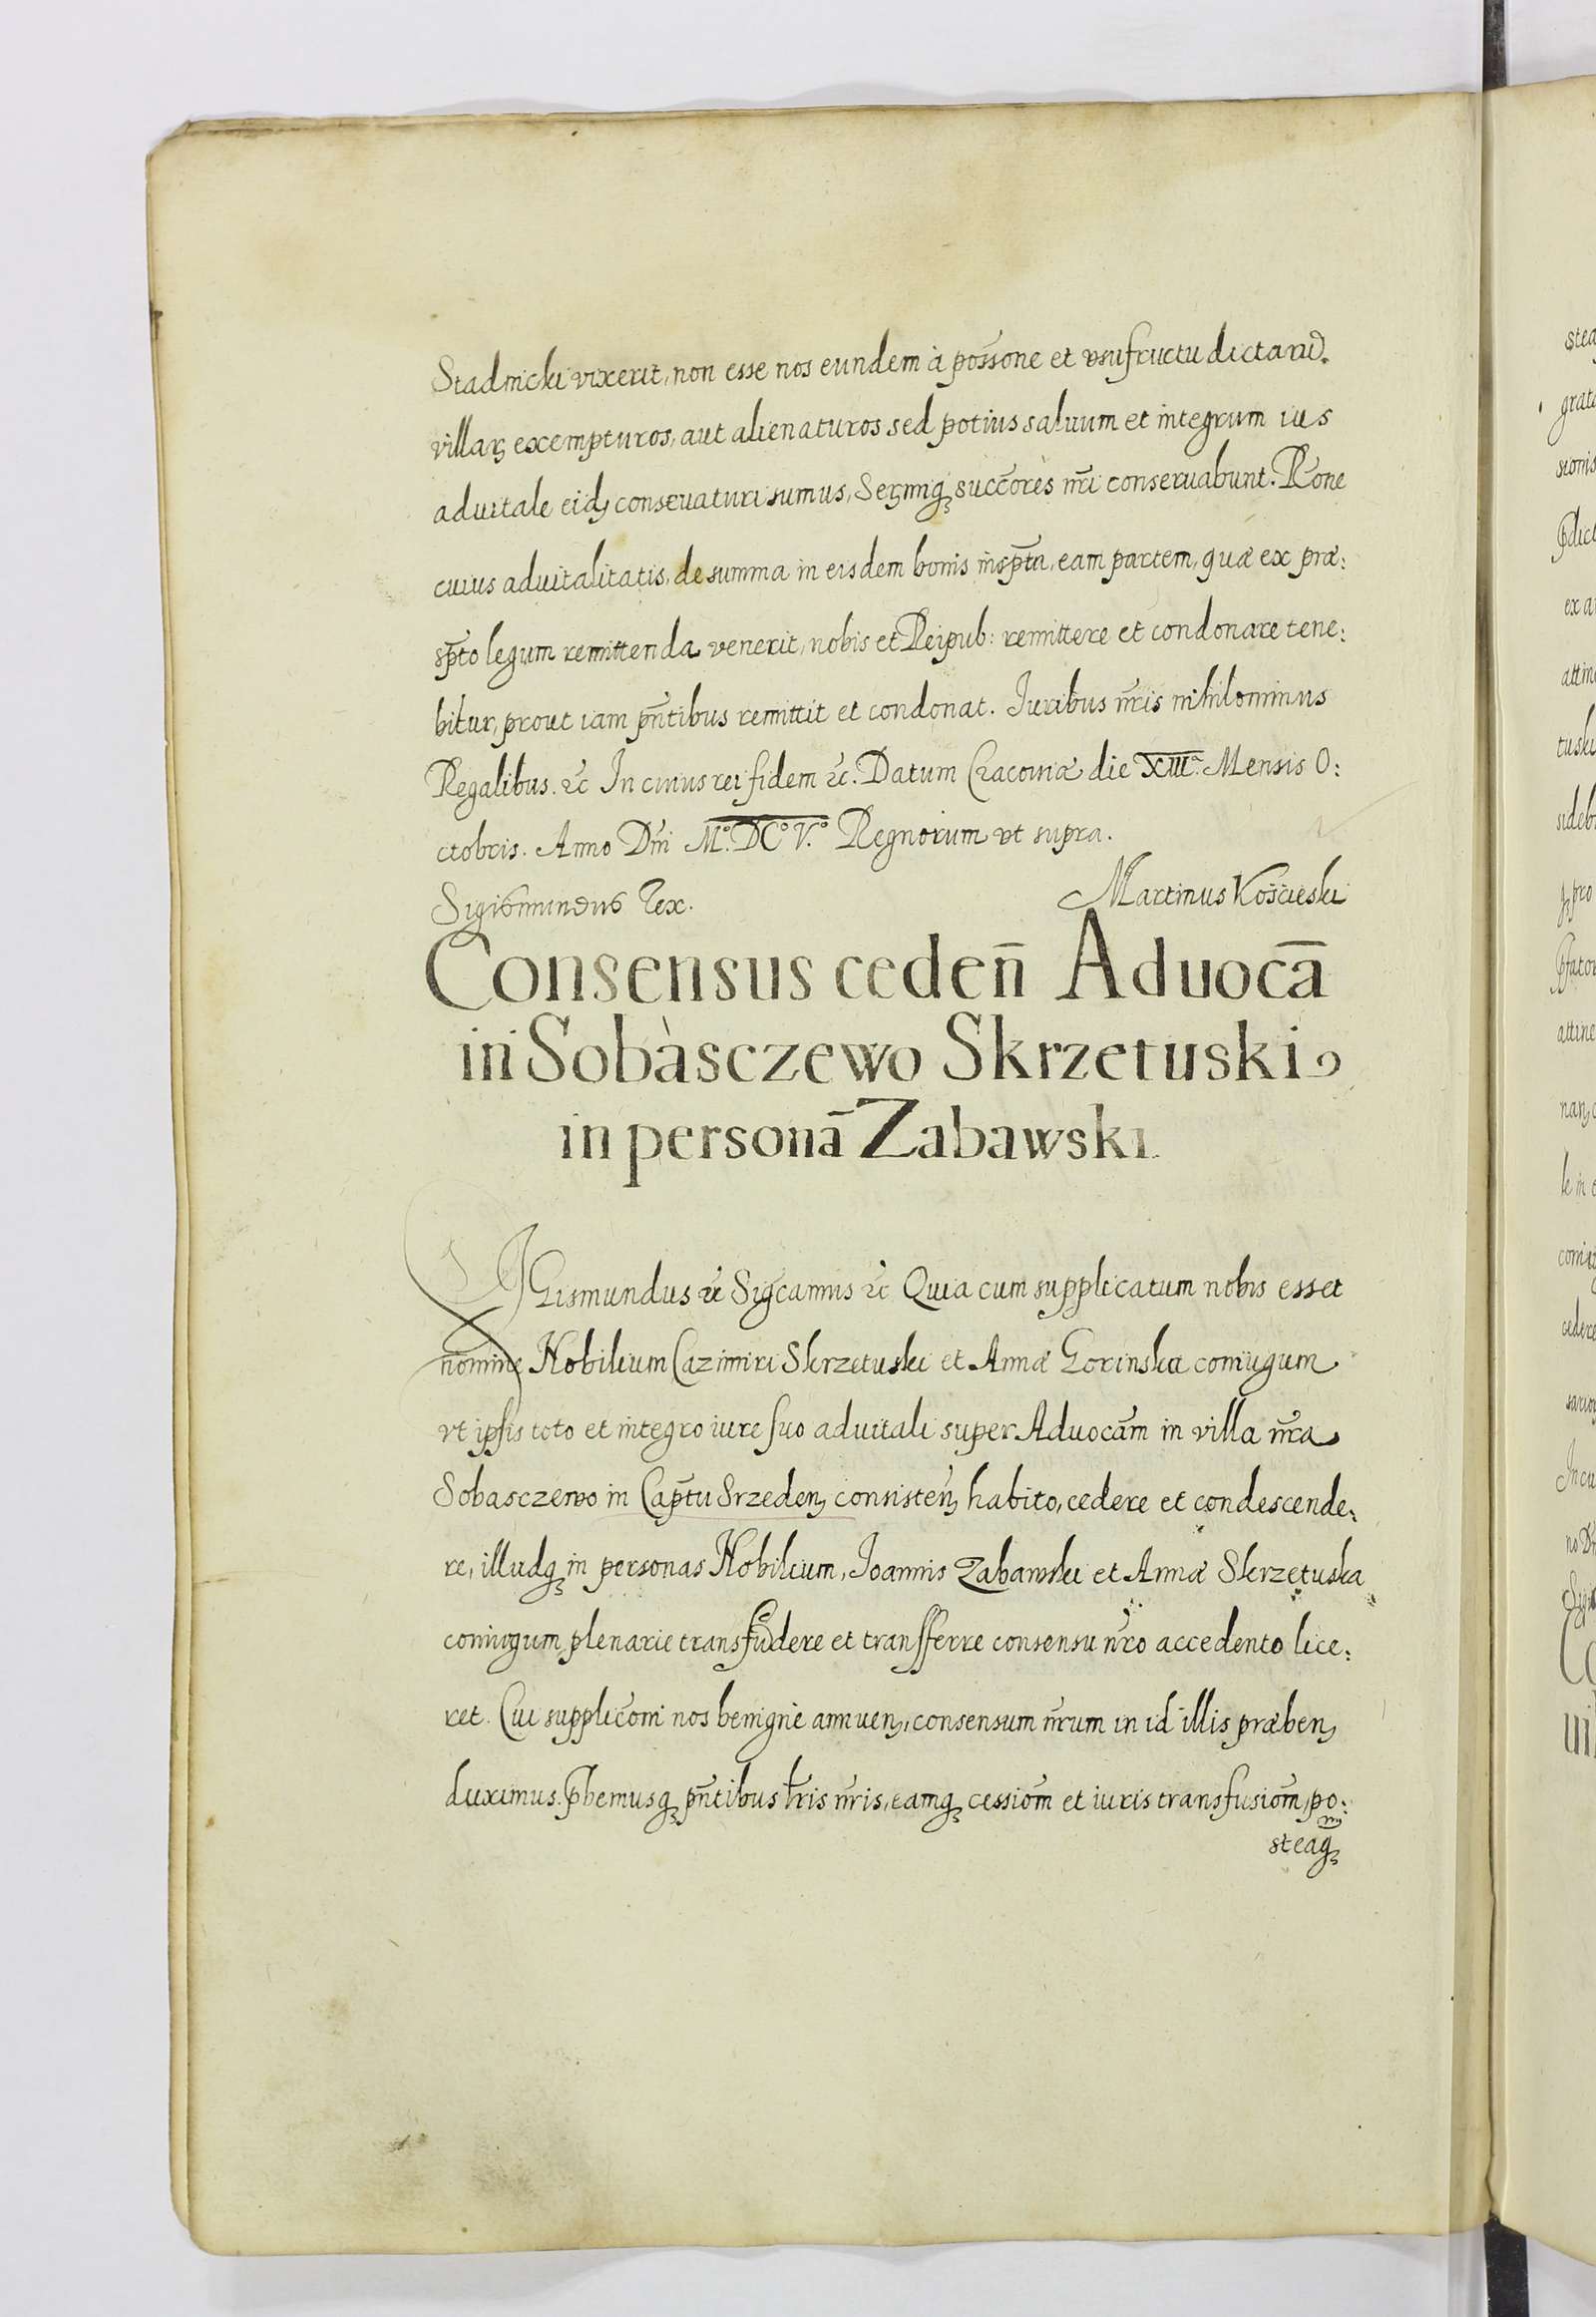 Stadnicki vixerit, non esse nos eundem à possōne et vsufructu dictarū
villarꝫ exempturos, aut alienaturos sed potius saluum et integrum ius
aduitale eidꝫ conseruaturi sumus, Serꝫmiqꝫ succōres nr̄i conseruabunt. Rōne
cuius aduitalitatis, de summa in eisdem bonis inspt̄a, eam partem, quæ ex præ:
spt̄o legum remittenda venerit, nobis et Reipub: remittere et condonare tene:
bitur, prout iam pn̄tibus remittit et condonat. Iuribus nr̄is nihilominus
Regalibus. &c In cuius rei fidem &c. Datum Cracouiæ die XIII. Mensis O:
ctobris. Anno Dn̄i M.º DCº V.º Regnorum vt supra.
Sigismundus Rex. Martinus Kośćieski
Consensus ceden̄ Aduocā
in Sobàsczewo Skrzetuski
in personā Zabawski
SIGismundus &c Sigcamus &c Quia cum supplicatum nobis esset
nomine Nobilium Cazimiri Skrzetuski et Annæ Gorinska coniugum
vt ipsis toto et integro iure suo aduitali super Aduocām in villa nr̄a
Sobasczewo in Capt̄u Srzedenꝫ consisten̄ꝫ habito, cedere et condescende:
re, illudqꝫ in personas Nobilium, Ioannis Zabawski et Annæ Skrzetuska
coniugum plenarie transfūdere et transferre consensu nr̄o accedento lice:
ret. Cui supplicōni nos benigne annuenꝫ, consensum nr̄um in id illis præbenꝫ
duximus. Phemusqꝫ pn̄tibus lr̄is nr̄is, eamqꝫ cessiōm et iuris transfusiōm, po:
steaqꝫ